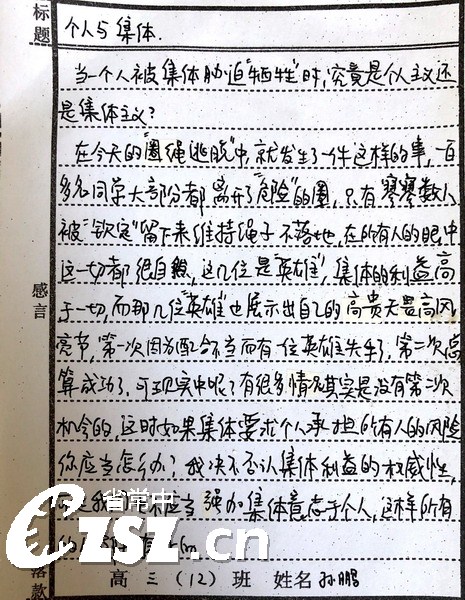 标题
个人与集体.
当一个人被集体胁迫"牺牲"时,究竟是个人主义还
是集体主义?
在今天的"圈绳逃脱"中,就发生了一件这样的事,一百
多名同学大部分都离开了"危险"的圈,只有寥寥数人
被"钦定"留下来维持绳子不落地,在所有人的眼中,
这一切都很自然,这几位是"英雄",集体的利益高
于一切,而那几位"英雄"也展示出自己的高贵无畏高风
亮节,第一次因为配合不当而有一位英雄失手了,第二次总
算成功了,可现实中呢?有很多情况其实是没有第二次
机会的,这时如果集体要求个人承担所有人的风险
你应当怎么办?我决不否认集体利益的权威性,
不应当强加集体意志于个人,这样所有
感言
落款
高三(12)班 姓名 孙鹏
省常中
CZSZ.cn